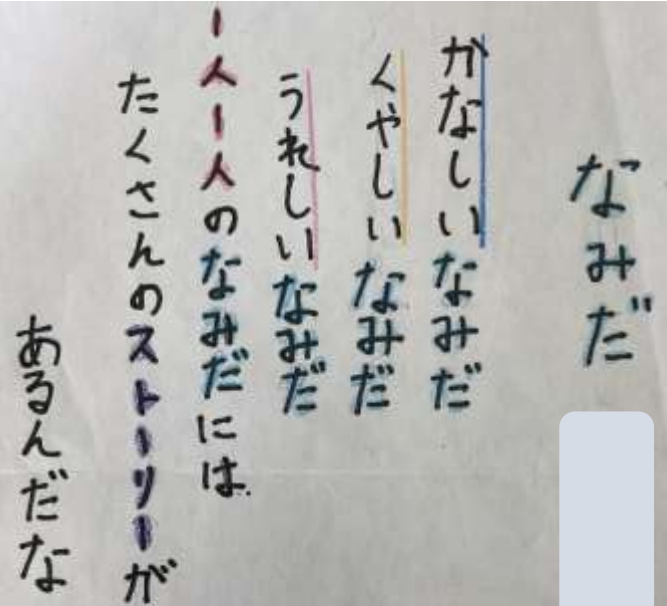 なみだ
かなしいなみだ
くやしいなみだ
うれしいなみだ
一人一人のなみだには
たくさんのストーリーが
あるんだな